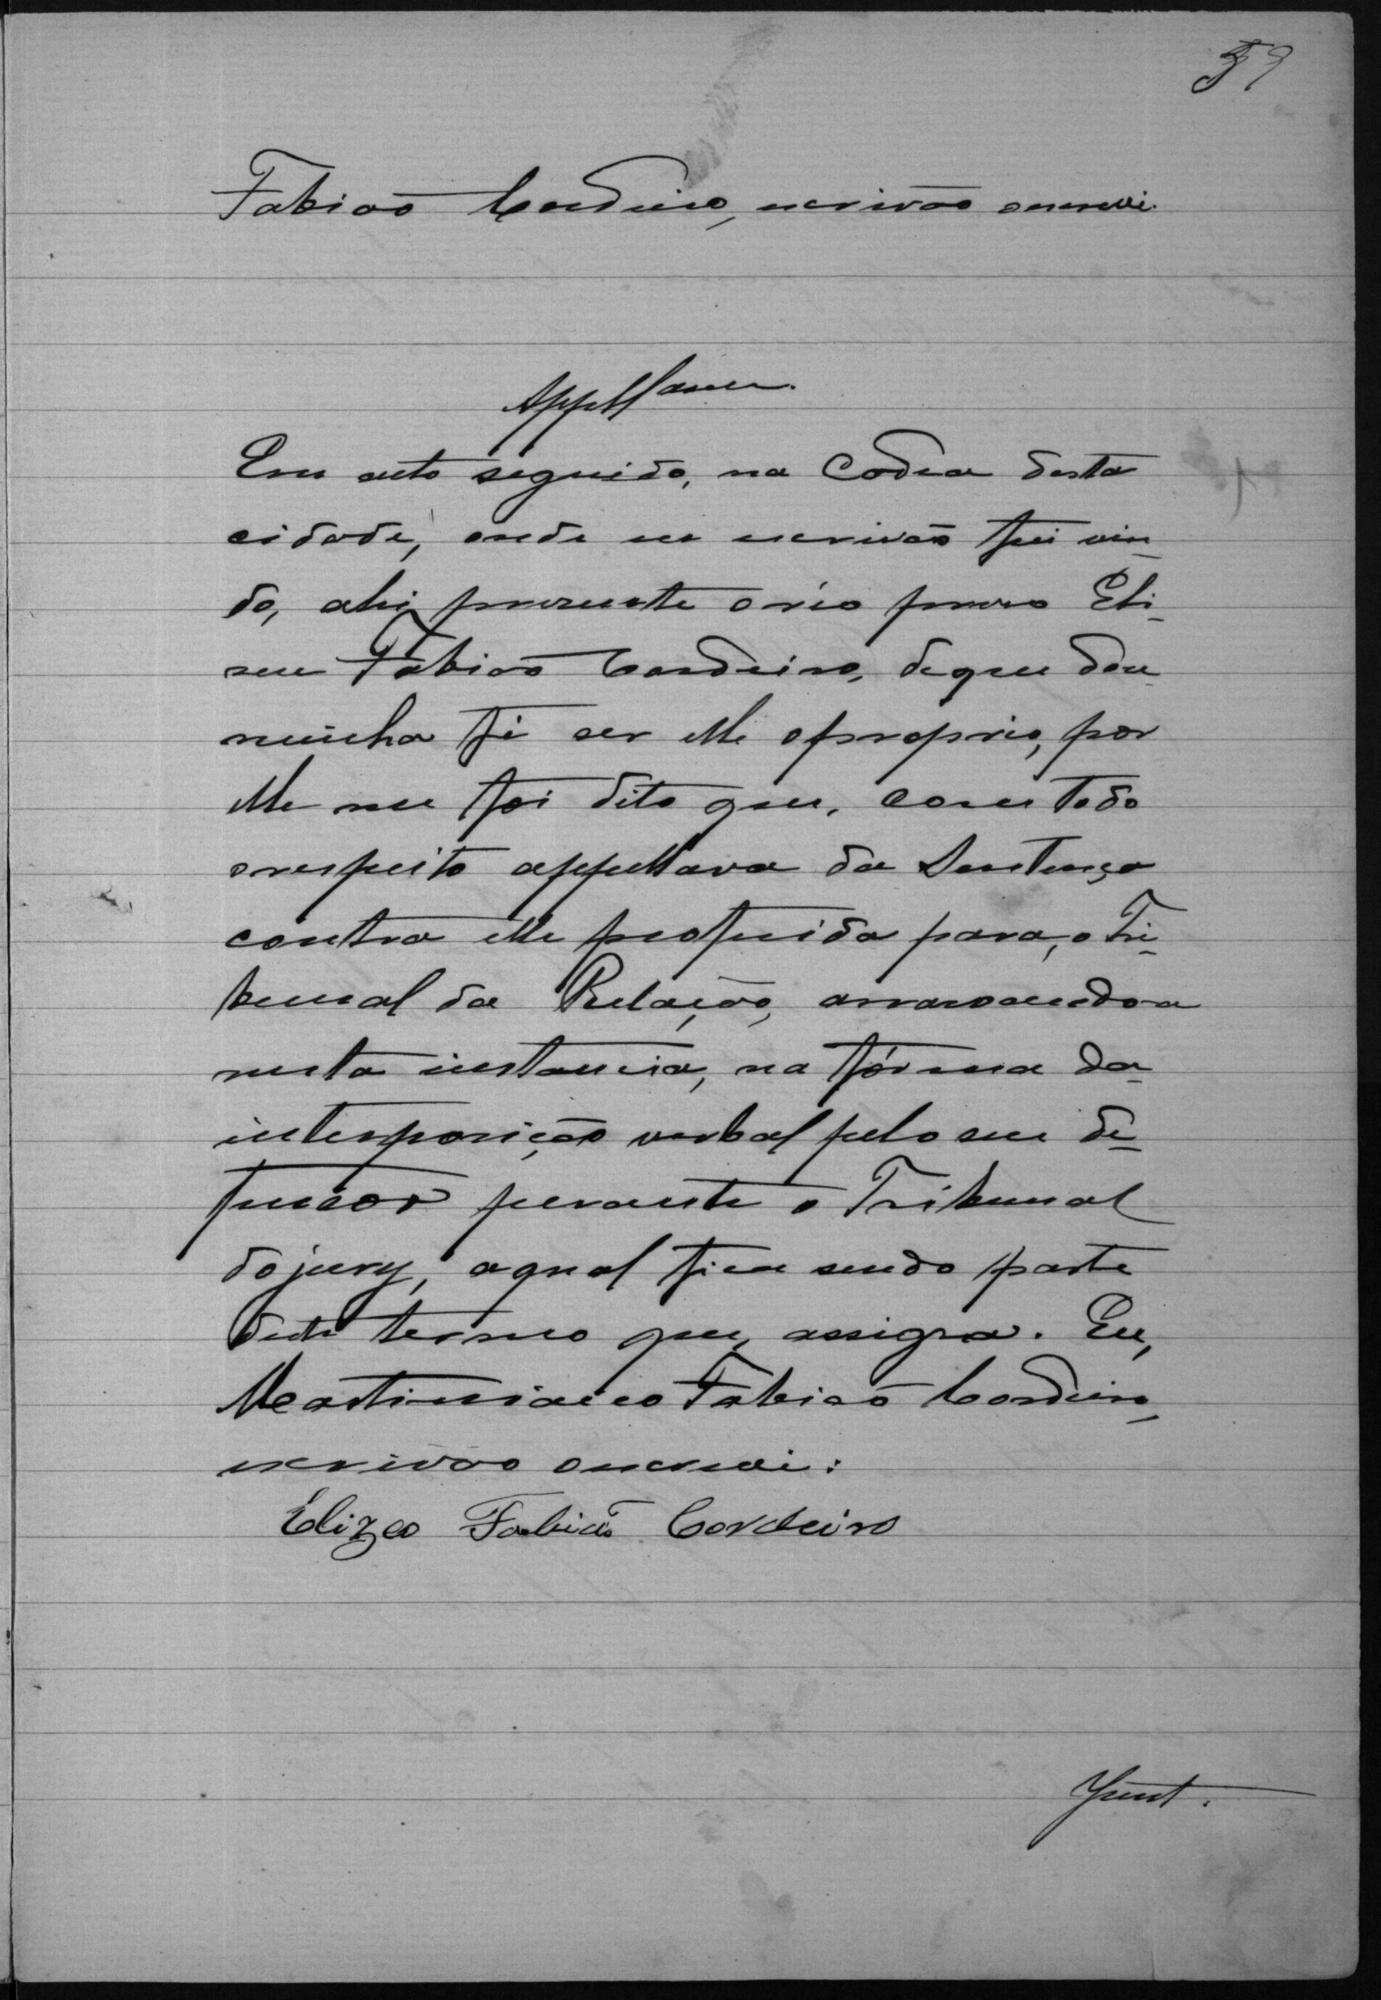 59
Fabião Cordeiro, escrivão o escrevi.
Appellação.
Em acto seguido, na Cadea desta
cidade, onde eu escrivão fui vin-
do, ahi presente o réo preso Eli-
seu Fabião Cordeiro, de que dou
minha fé ser elle o proprio, por
elle me foi dito que, com todo
o respeito appellava da Sentença
contra elle proferida para, o Tri-
bunal da Relação, arrasoando-a
nesta instancia, na fórma da
interposição verbal pelo seu de-
fensor perante o Tribunal
do jury, a qual fica sendo parte
deste termo que, assigna. Eu,
Martiniano Fabião Cordeiro,
escrivão o escrevi:
Elizeo Fabião Cordeiro
Junt.